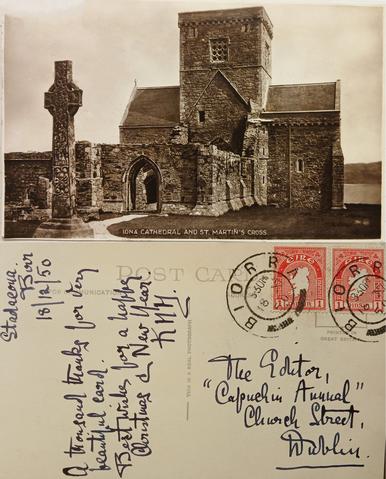 IONA CATHEDRAL AND ST. MARTIN'S CROSS.
POST CARD
Stadacona.
Birr
18/12/50
A thousand thanks for very
beautiful card.
Best wishes for a happy
Christmas & New Year
THIS IS A REAL PHOTOGRAPH
BIORRA
BIORRA
EIRE
EIRE
1
1
1
The Editor,
"Capuchin Annual"
Church Street,
Dublin.